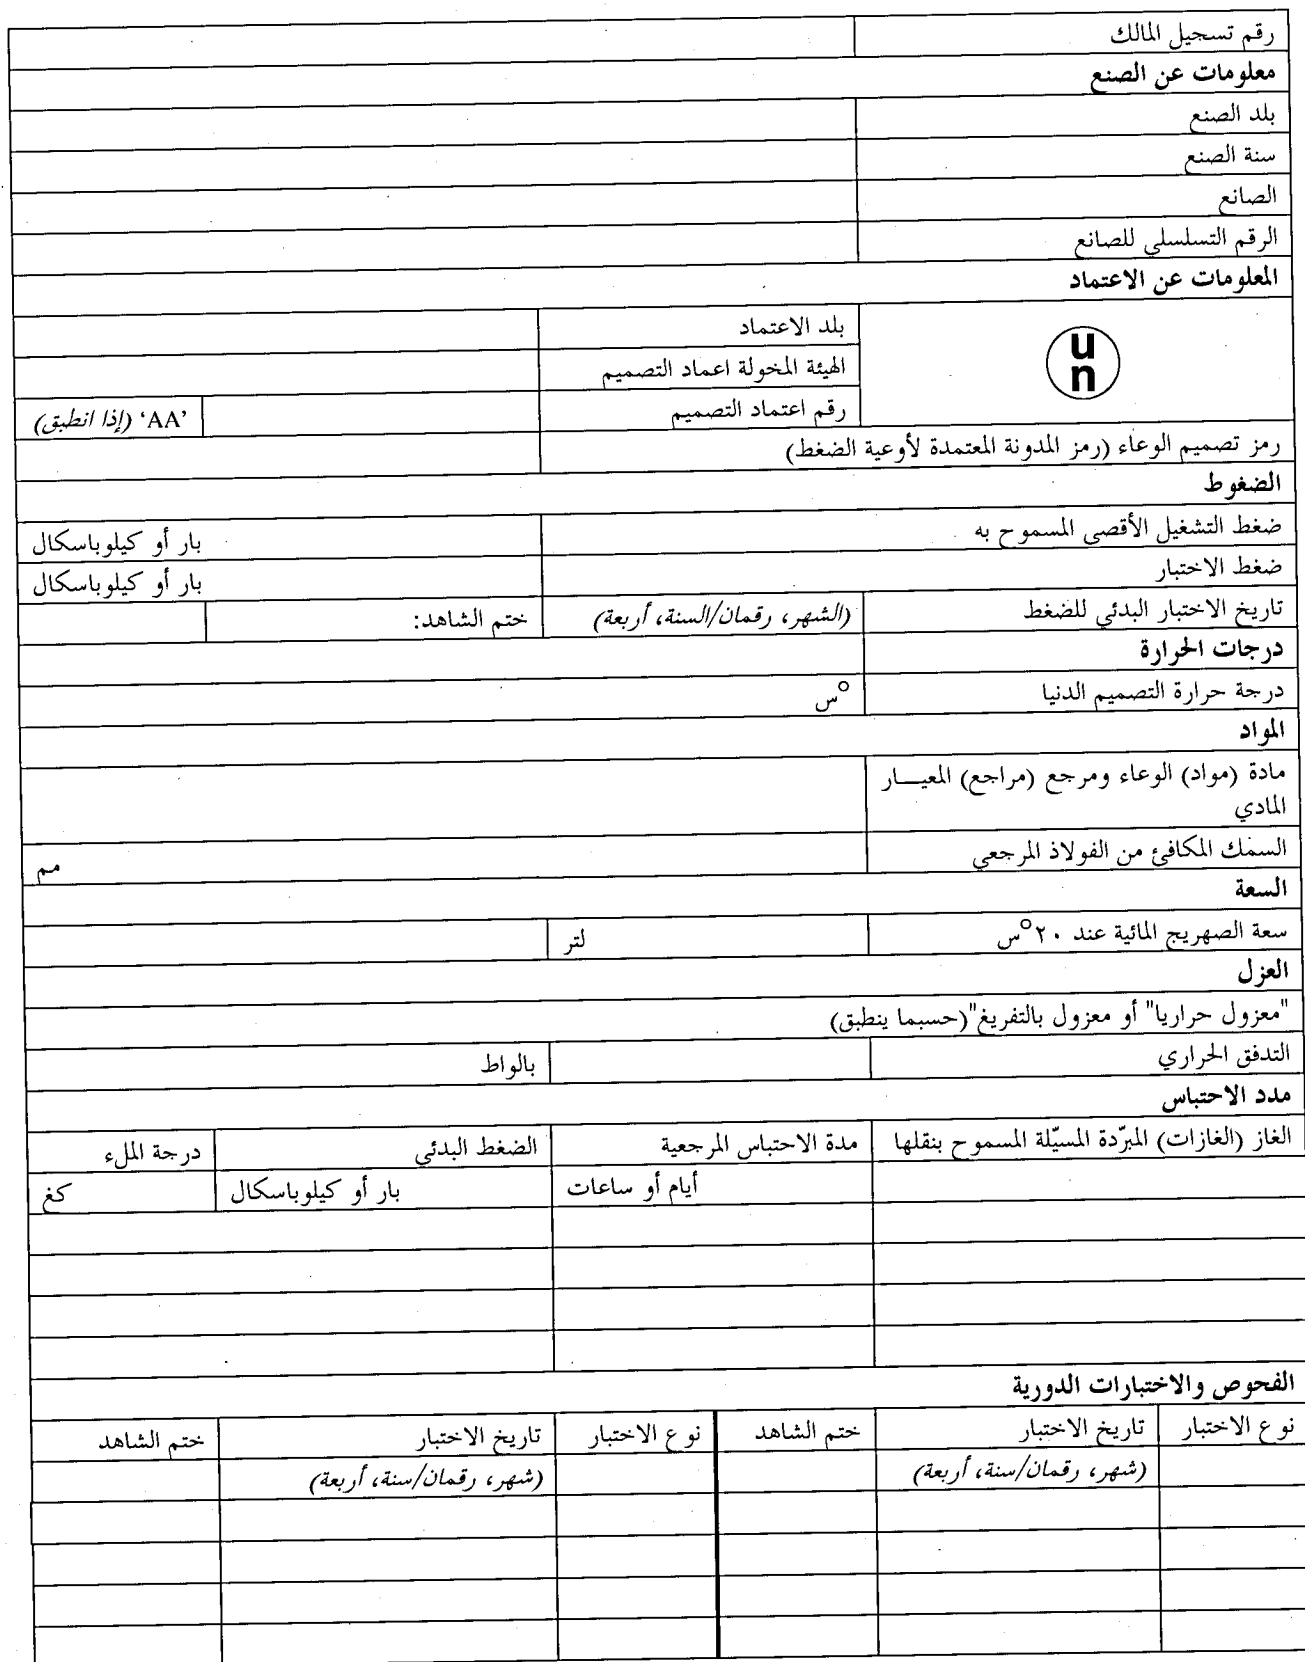 رقم تسجيل المالك
معلومات عن الصنع
بلد الصنع
سنة الصنع
الصانع
الرقم التسلسلي للصانع
المعلومات عن الاعتماد
un
بلد الاعتماد
الهيئة المخولة اعماد التصميم
رقم اعتماد التصميم
'AA' (إذا انطبق)
رمز تصميم الوعاء (رمز المدونة المعتمدة لأوعية الضغط)
الضغوط
ضغط التشغيل الأقصى المسموح به
بار أو كيلوباسكال
ضغط الاختبار
بار أو كيلوباسكال
تاريخ الاختبار البدئي للضغط
(الشهر، رقمان/السنة، أربعة)
ختم الشاهد:
درجات الحرارة
درجة حرارة التصميم الدنيا
°س
المواد
مادة (مواد) الوعاء ومرجع (مراجع) المعيـــار
المادي
السمك المكافئ من الفولاذ المرجعي
مم
السعة
سعة الصهريج المائية عند ٢٠°س
لتر
العزل
"معزول حراريا" أو معزول بالتفريغ"(حسبما ينطبق)
التدفق الحراري
بالواط
مدد الاحتباس
الغاز (الغازات) المبرّدة المسيّلة المسموح بنقلها
مدة الاحتباس المرجعية
الضغط البدئي
درجة الملء
أيام أو ساعات
بار أو كيلوباسكال
كغ
الفحوص والاختبارات الدورية
نوع الاختبار
تاريخ الاختبار
ختم الشاهد
نوع الاختبار
تاريخ الاختبار
ختم الشاهد
(شهر، رقمان/سنة، أربعة)
(شهر، رقمان/سنة، أربعة)